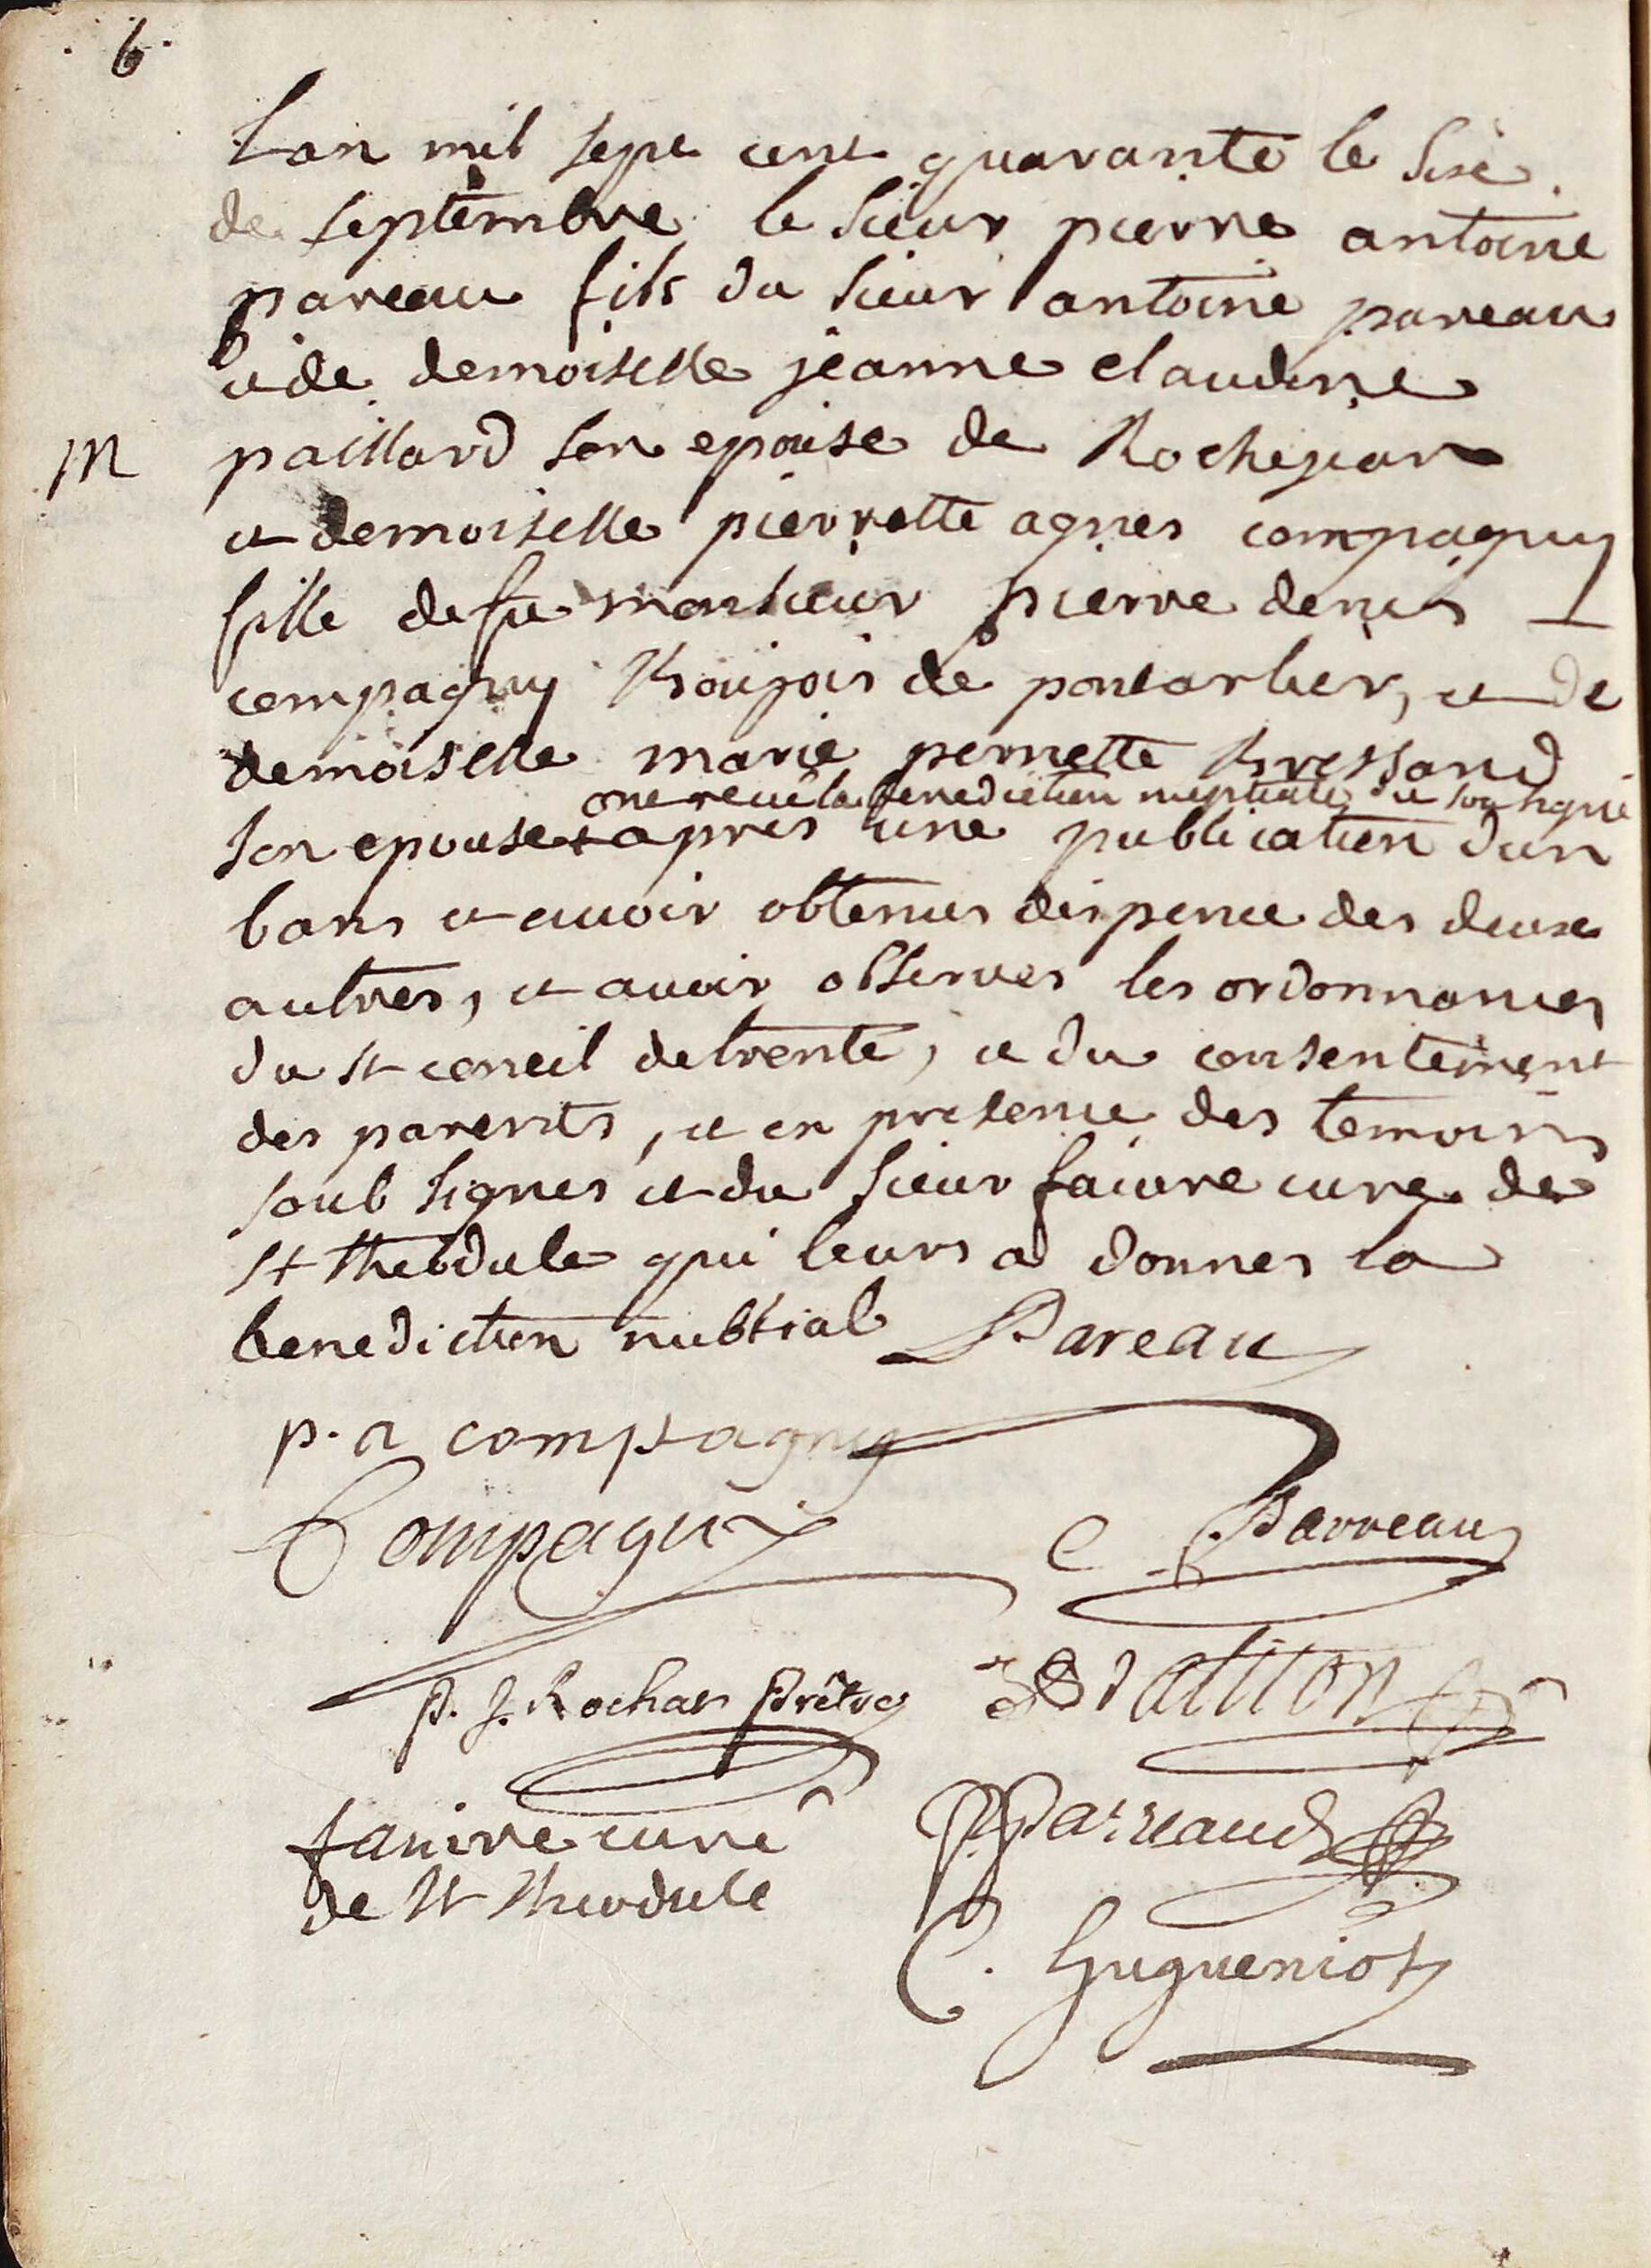 6
Lan mil sept cent quarante le sixe
de septembre le sieur pierre antoine
pareau fils du sieur antoine pareau
et de demoiselle jeanne claudine
M
paillard son epouse de Rochejean
et demoiselle pierrette agnes compagny
fille de fu monsieur pierre denis
compagny Bourjois de pontarlier, et de
demoiselle marie pernette Bressand
ont recu la benediction nuptiale du sousigné
son epouse + apres une publication dun
bans et avoir obtenus dispence des deuxe
autres, et avoir observes les ordonnances
du st concil de trente, et du consentement
des parents, et en presence des temoins
soub signes et du sieur faivre cure de
st theodule qui leurs a donner la
benediction nubtial Pareau
p. a compagny
Compagny
C Parreau
P. J. Rochat Prêtre
faivre curé
de st theodule
C. Hugueniot